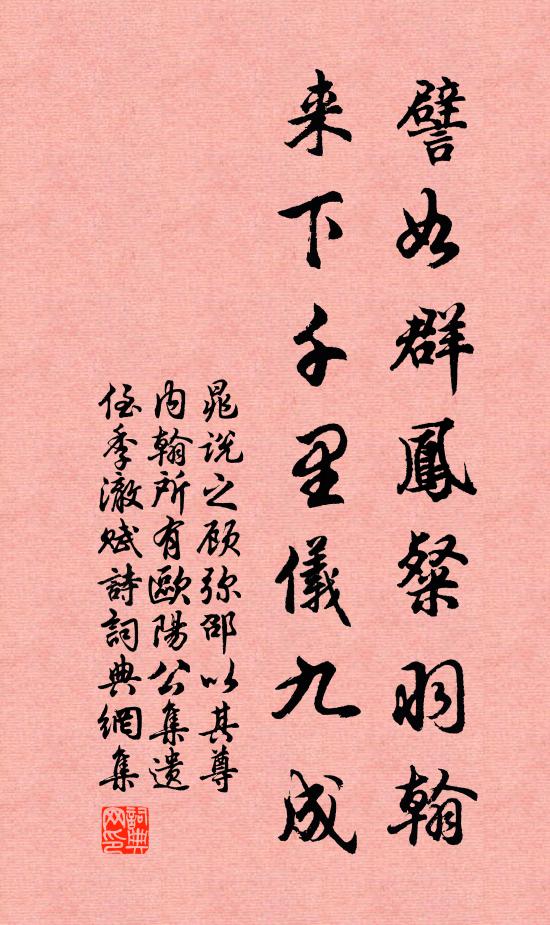 譬如群鳳粲羽翰
来下千里儀九成
晁说之顾弥邵以其尊
内翰所有歐陽公集遗
侄季澈赋詩詞典網集
詞典网印